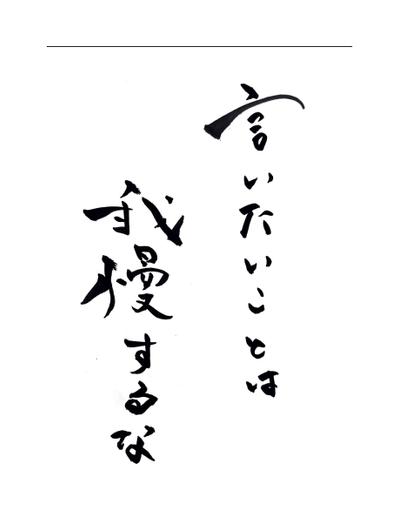 言いたいことは
我慢するな